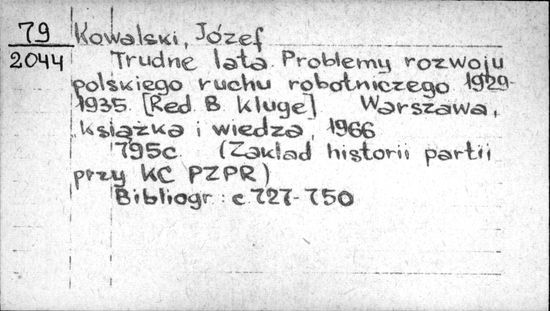 79 Kowalski, Józef
2044 Trudne lata. Problemy rozwoju
polskiego ruchu robotniczego 1929-
1935. [Red. B. Kluge] Warszawa,
"Książka i wiedza, 1966
795c. (Zakład historii partii
przy KC PZPR)
Bibliogr: c. 727-750